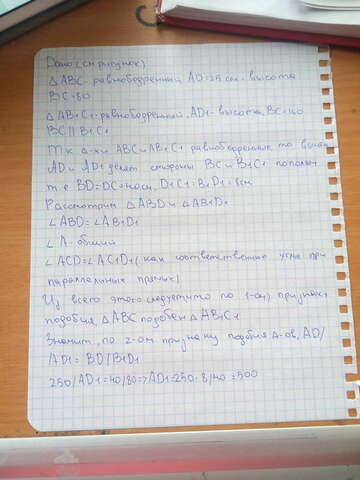 Дано (см рисунок)
△ABC равнобедренный AD=25см - высота
BC=80
△AB1C1 равнобедренный, AD1-высота, BC=160
BC || B1C1
Т.к △-ки ABC и AB1C1 равнобедренные то высоты
AD и AD1 делят стороны BC и B1C1 пополам
т.е BD=DC=40см, D1C1=B1D1=8см
Рассмотрим △ABD и △AB1D1
∠ABD=∠AB1D1
∠A-общий
∠ACD=∠AC1D1 (как соответственные углы при
параллельных прямых)
Из всего этого следует что по 1-ому признаку
подобия, △ABC подобен △AB1C1
Значит, по 2-ому признаку подобия △-ов, AD/
AD1=BD/B1D1
250/AD1=40/80=>AD1=250·8/40=500